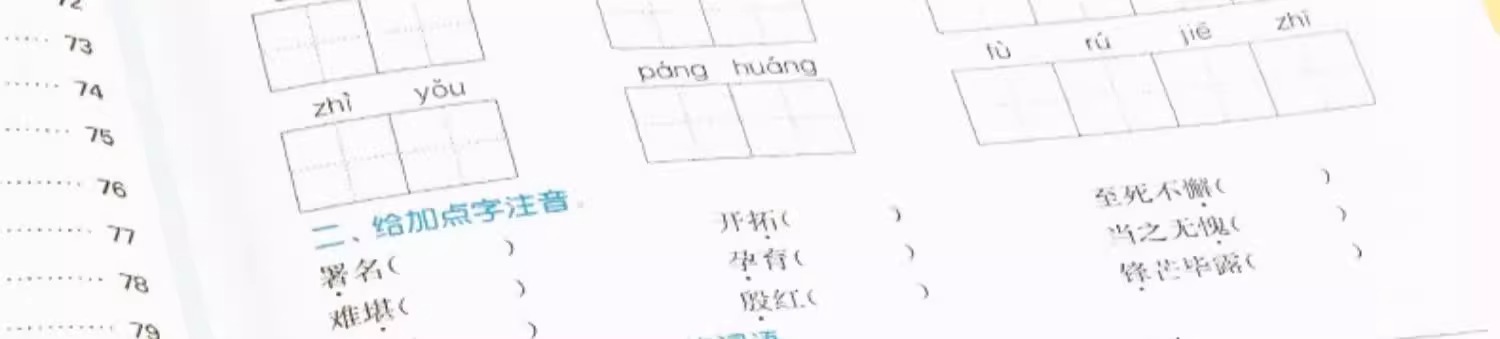 73
74
75
76
77
78
79
zhì yǒu
páng huáng
rú jié zhī
二、给加点字注音。
署名( )
难堪( )
开拓( )
孕育( )
殷红( )
至死不懈( )
当之无愧( )
锋芒毕露( )